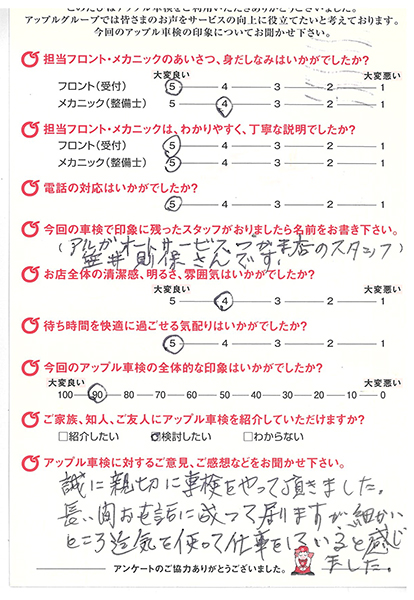 このたびはアップル車検をご利用いただきありがとうございました。
アップルグループでは皆さまのお声をサービスの向上に役立てたいと考えております。
今回のアップル車検の印象についてお聞かせ下さい。
担当フロント・メカニックのあいさつ、身だしなみはいかがでしたか?
大変良い 大変悪い
フロント(受付) 5 4 3 2 1
メカニック(整備士) 5 4 3 2 1
担当フロント・メカニックは、わかりやすく、丁寧な説明でしたか?
大変良い 大変悪い
フロント(受付) 5 4 3 2 1
メカニック(整備士) 5 4 3 2 1
電話の対応はいかがでしたか?
大変良い 大変悪い
5 4 3 2 1
今回の車検で印象に残ったスタッフがおりましたら名前をお書き下さい。
(アルガオートサービス つがま店のスタッフ)
笠井 則保さんです!
お店全体の清潔感、明るさ、雰囲気はいかがでしたか?
大変良い 大変悪い
5 4 3 2 1
待ち時間を快適に過ごせる気配りはいかがでしたか?
大変良い 大変悪い
5 4 3 2 1
今回のアップル車検の全体的な印象はいかがでしたか?
大変良い 大変悪い
100 90 80 70 60 50 40 30 20 10 0
ご家族、知人、ご友人にアップル車検を紹介していただけますか?
□紹介したい □検討したい □わからない
アップル車検に対するご意見、ご感想などをお聞かせ下さい。
誠に親切に車検をやって頂きました。
長い間お世話に成って居りますが、細かい
ところ迄気を使って仕事をしていると感じ
ました。
アンケートのご協力ありがとうございました。